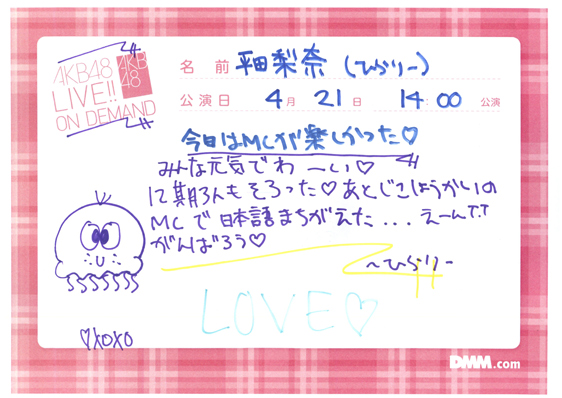 AKB48
LIVE!!
ON DEMAND
AKB
48
名 前 平田梨奈 (ひらりー)
公演日 4月 21日 14:00 公演
今日はMCが楽しかった♡
みんな元気でわーい♡
12期3人もそろった♡あとじこしょうかいの
MCで日本語まちがえた...えーんT.T
がんばろう♡
〜ひらりー
LOVE♡
♡XOXO
DMM.com